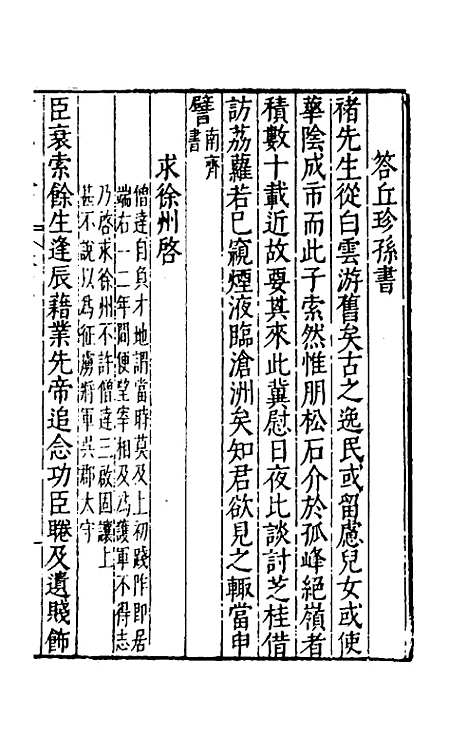 答丘珍孫書
褚先生從白雲游舊矣古之逸民或留慮兒女或使
華陰成市而此子索然惟朋松石介於孤峰絕嶺者
積數十載近故要其來此冀慰日夜比談討芝桂借
訪荔蘿若已窺煙液臨滄洲矣知君欲見之輙當申
譬南齊書
求徐州啓
僧達自負才地謂當時莫及上初踐阼即居
端右一二年間便望宰相及爲護軍不得志
乃啓求徐州不許僧達三啟固讓上
甚不說以爲征虜將軍吳郡太守
臣衰索餘生逢辰藉業先帝追念功臣睠及遺賤飾